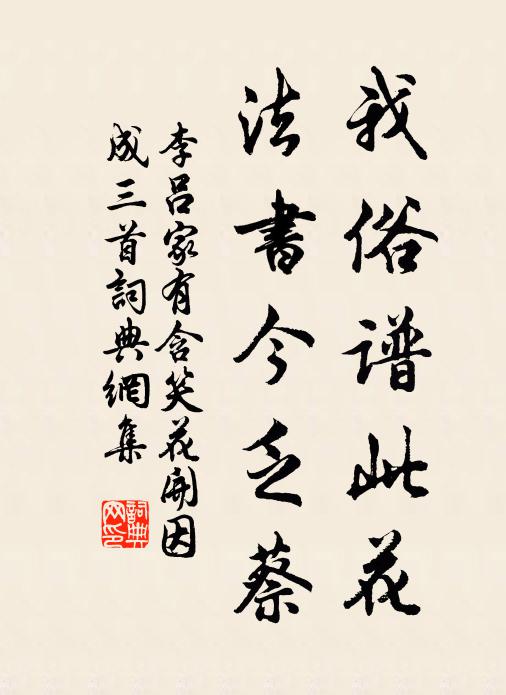 我俗谱此花
法書今乏蔡
李吕家有含笑花開因
成三首詞典網集
詞典网印